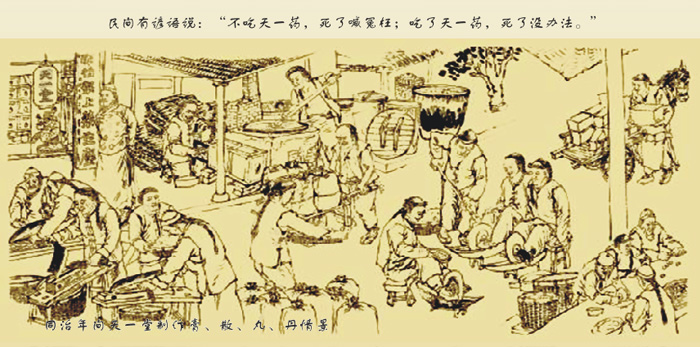 民间有谚语说：“不吃天一药，死了喊冤枉；吃了天一药，死了没办法。”
天一堂
同治年间天一堂制作膏、散、丸、丹情景